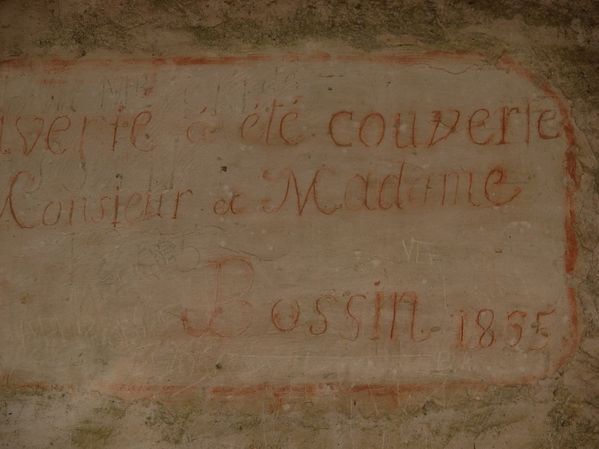 uverte à été couverte
Monsieur et Madame
Bossin 1855